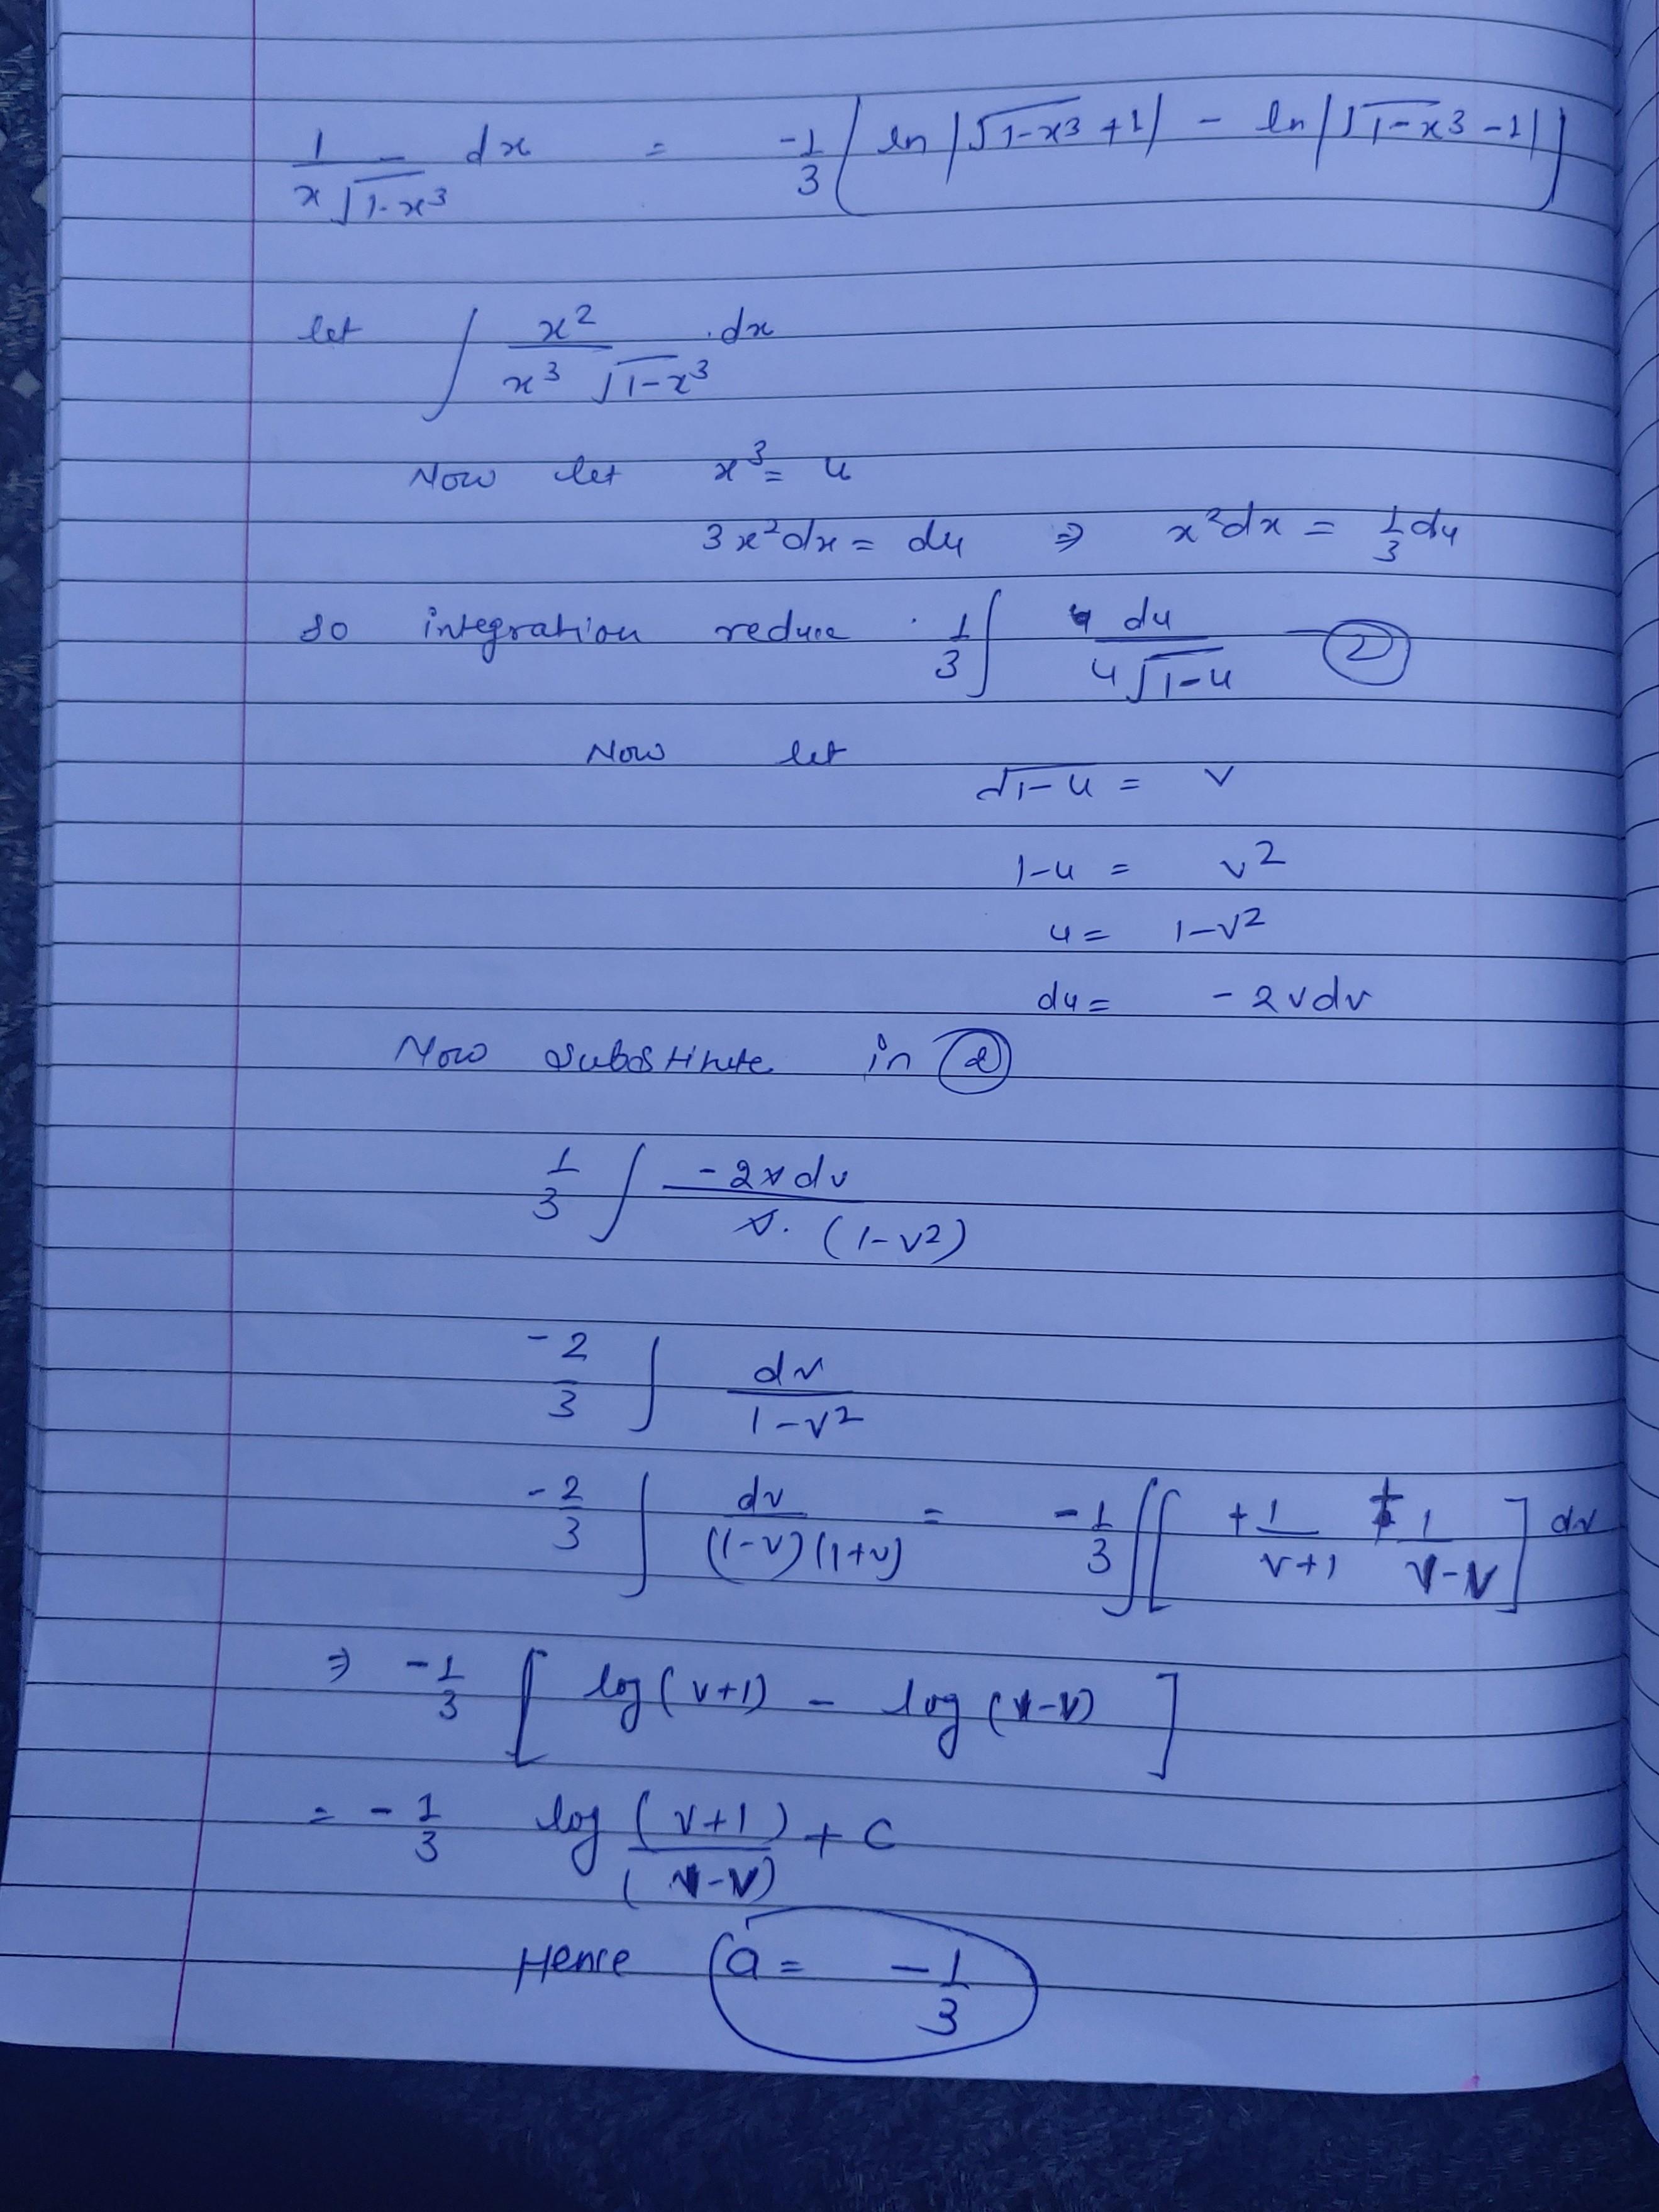 1/(x√(1-x³)) dx = -1/3 ( ln|√(1-x³) +1| - ln|√(1-x³) -1| )
let ∫ x²/(x³ √(1-x³)) .dx
Now let x³ = u
3x²dx = du ⇒ x²dx = 1/3 du
So integration reduce . 1/3 ∫ du/(u√(1-u)) — ②
Now let
√(1-u) = v
1-u = v²
u = 1-v²
du = -2vdv
Now substitute in ②
1/3 ∫ -2vdv/(v.(1-v²))
-2/3 ∫ dv/(1-v²)
-2/3 ∫ dv/((1-v)(1+v)) = -1/3 ∫[ +1/(v+1) + 1/(1-v) ] dv
⇒ -1/3 [ log(v+1) - log(1-v) ]
= -1/3 log (v+1)/(1-v) + C
Hence a = -1/3